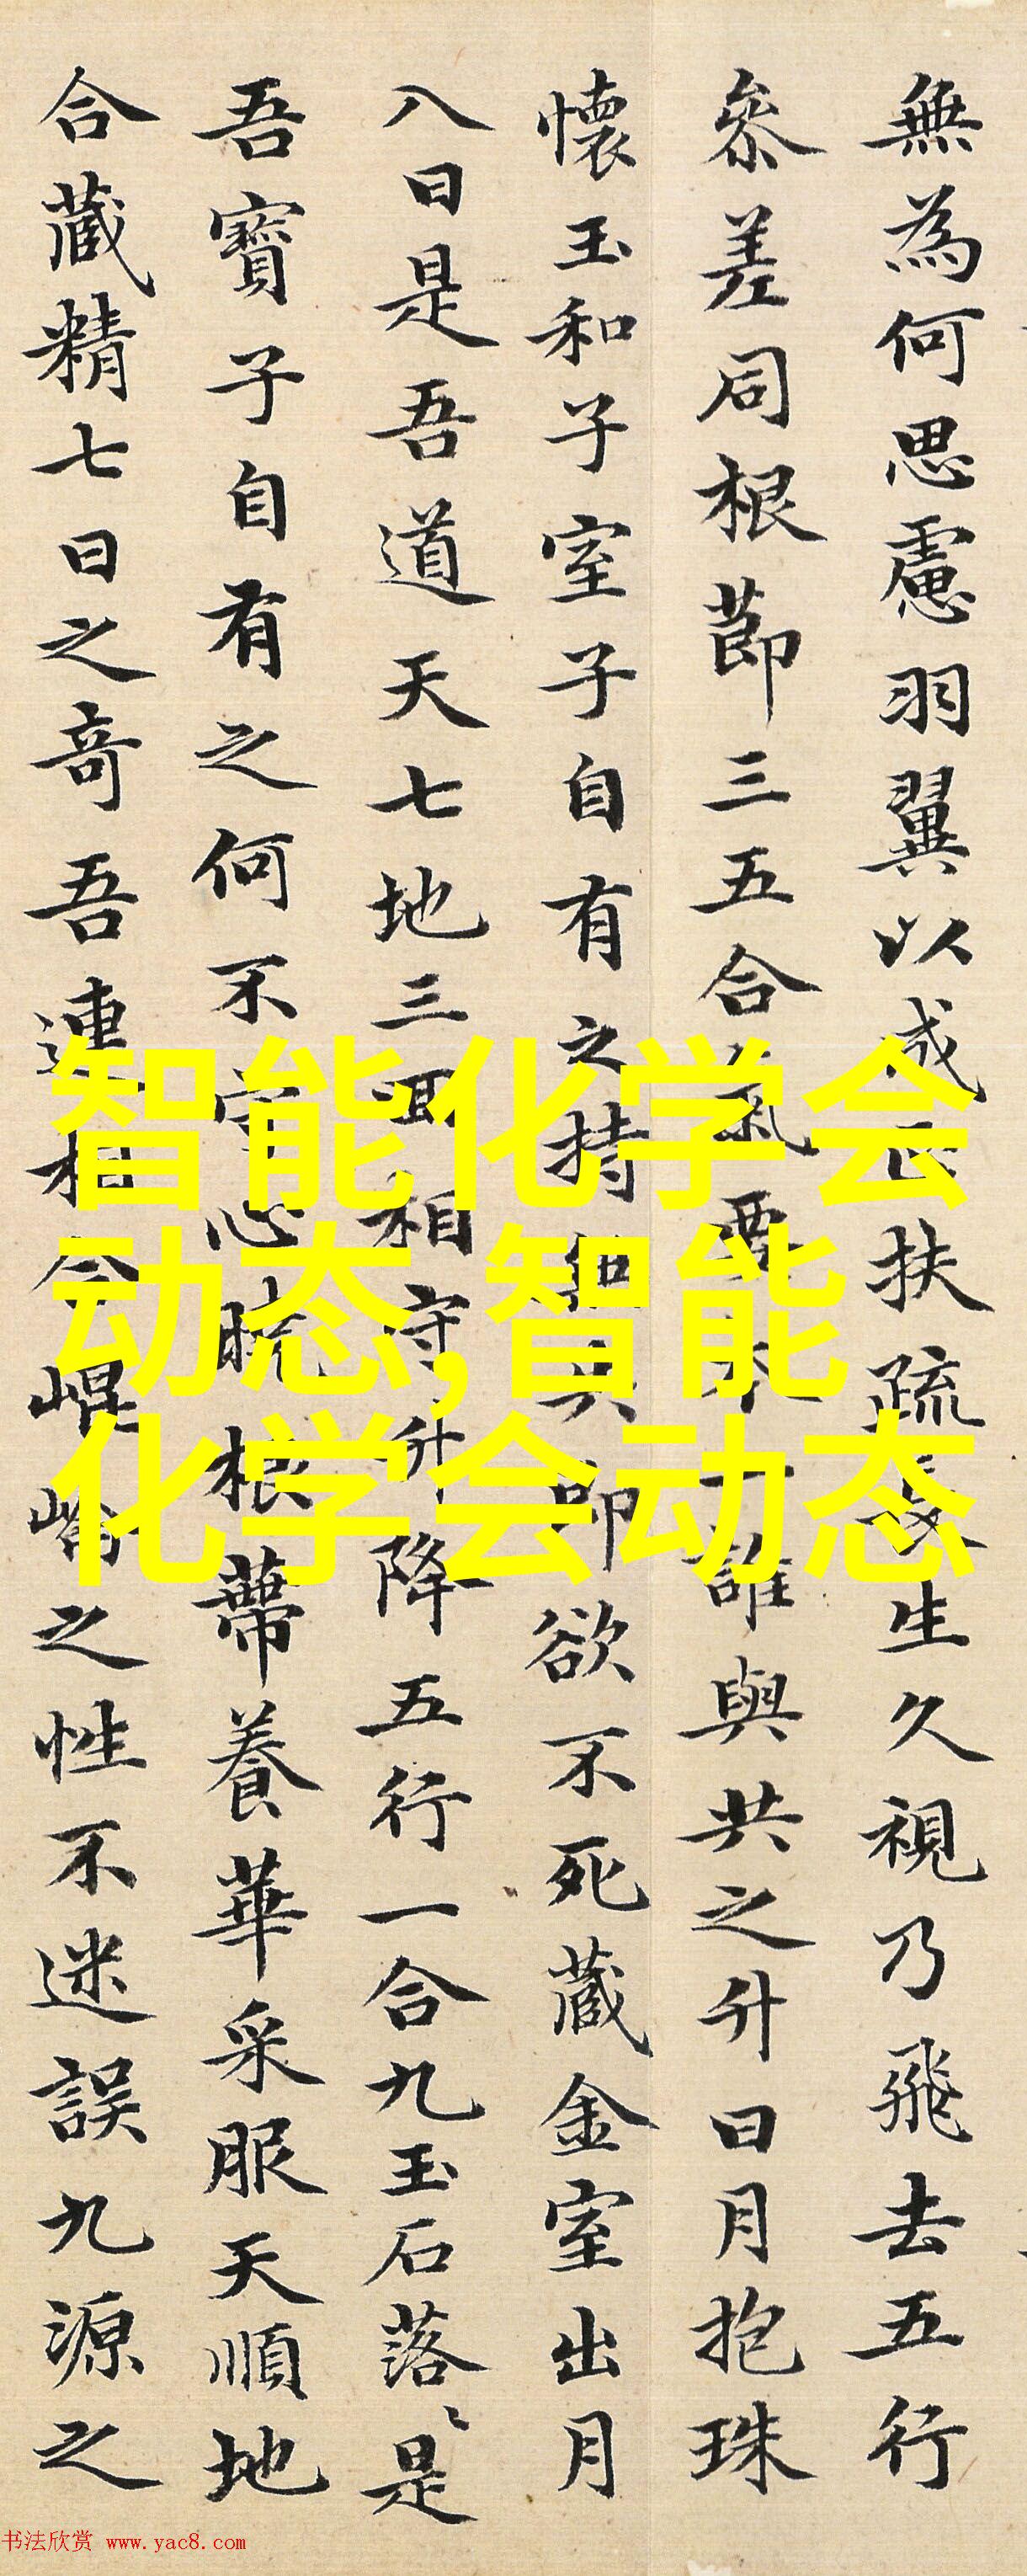 無為何思慮羽翼以成正扶疏生久視乃飛去五行
叅差同根莭三五合氣要本一誰與共之升日月抱珠
懷玉和子室子自有之持共即欲不死藏金室出月
八日是吾道天七地三回相守升降五行一合九玉石落〻是
吾寶子自有之何不守心曉根蔕養華采服天順地
合藏精七日之奇吾連相合崐崘之性不迷誤九源之
智能化学会
动态,智能
化学会动态
书法欣赏 www.yac8.com